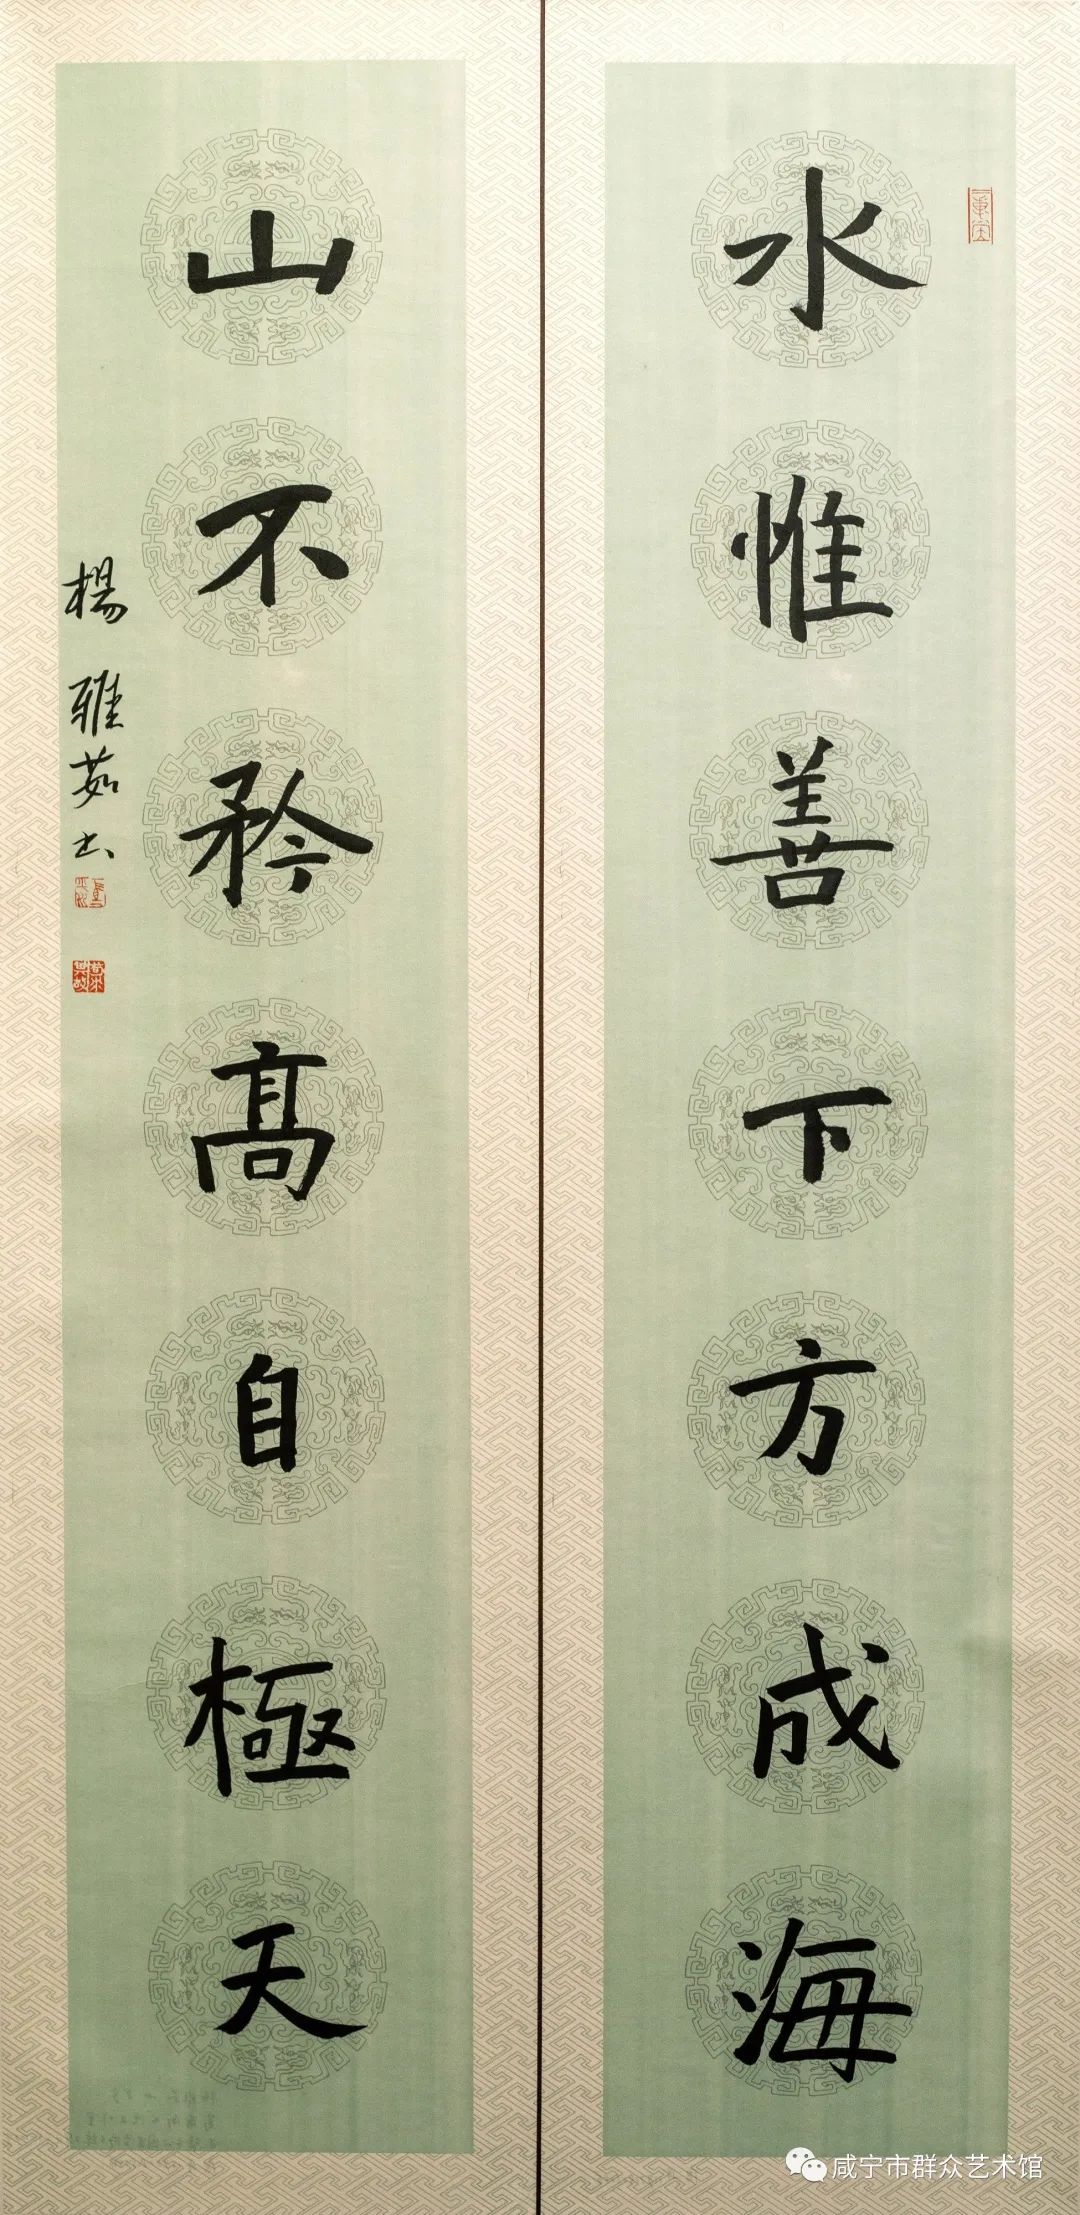 水惟善下方成海
山不矜高自極天
楊雅茹书
咸宁市群众艺术馆